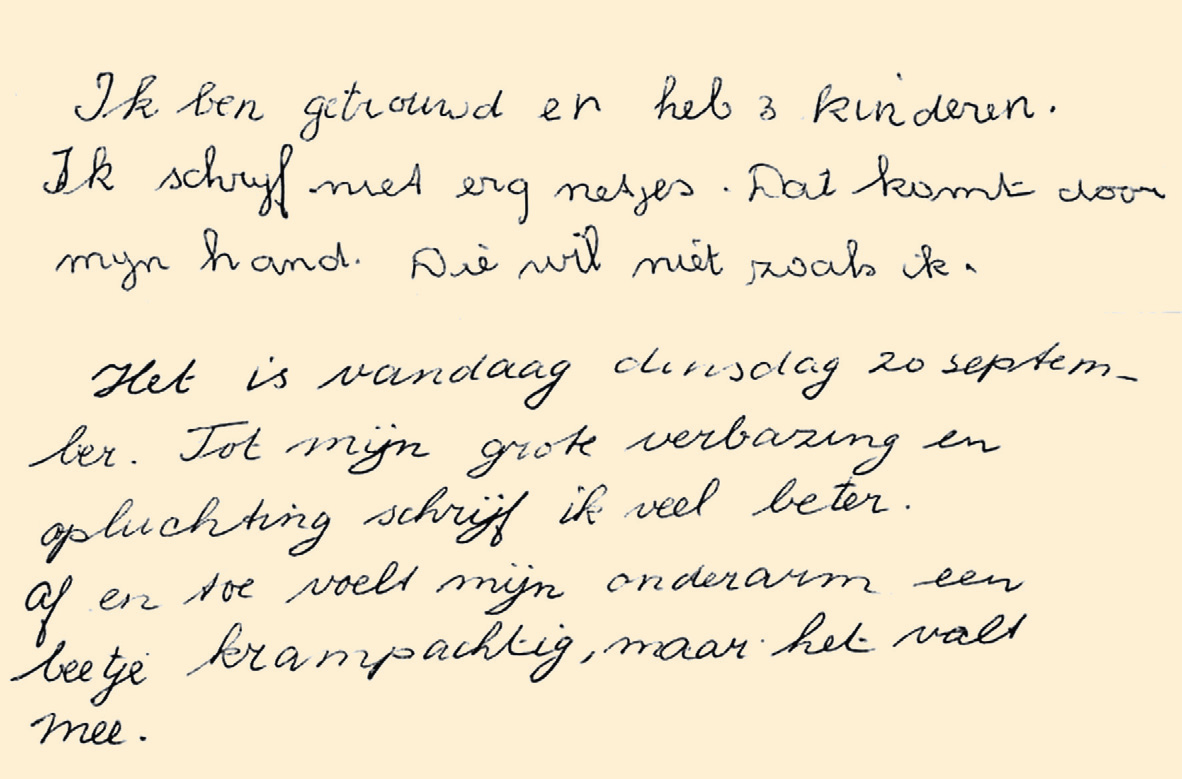 Ik ben getrouwd en heb 3 kinderen.
Ik schrijf niet erg netjes. Dat komt door
mijn hand. Die wil niet zoals ik.
Het is vandaag dinsdag 20 septem-
ber. Tot mijn grote verbazing en
opluchting schrijf ik veel beter.
Af en toe voelt mijn onderarm een
beetje krampachtig, maar het valt
mee.